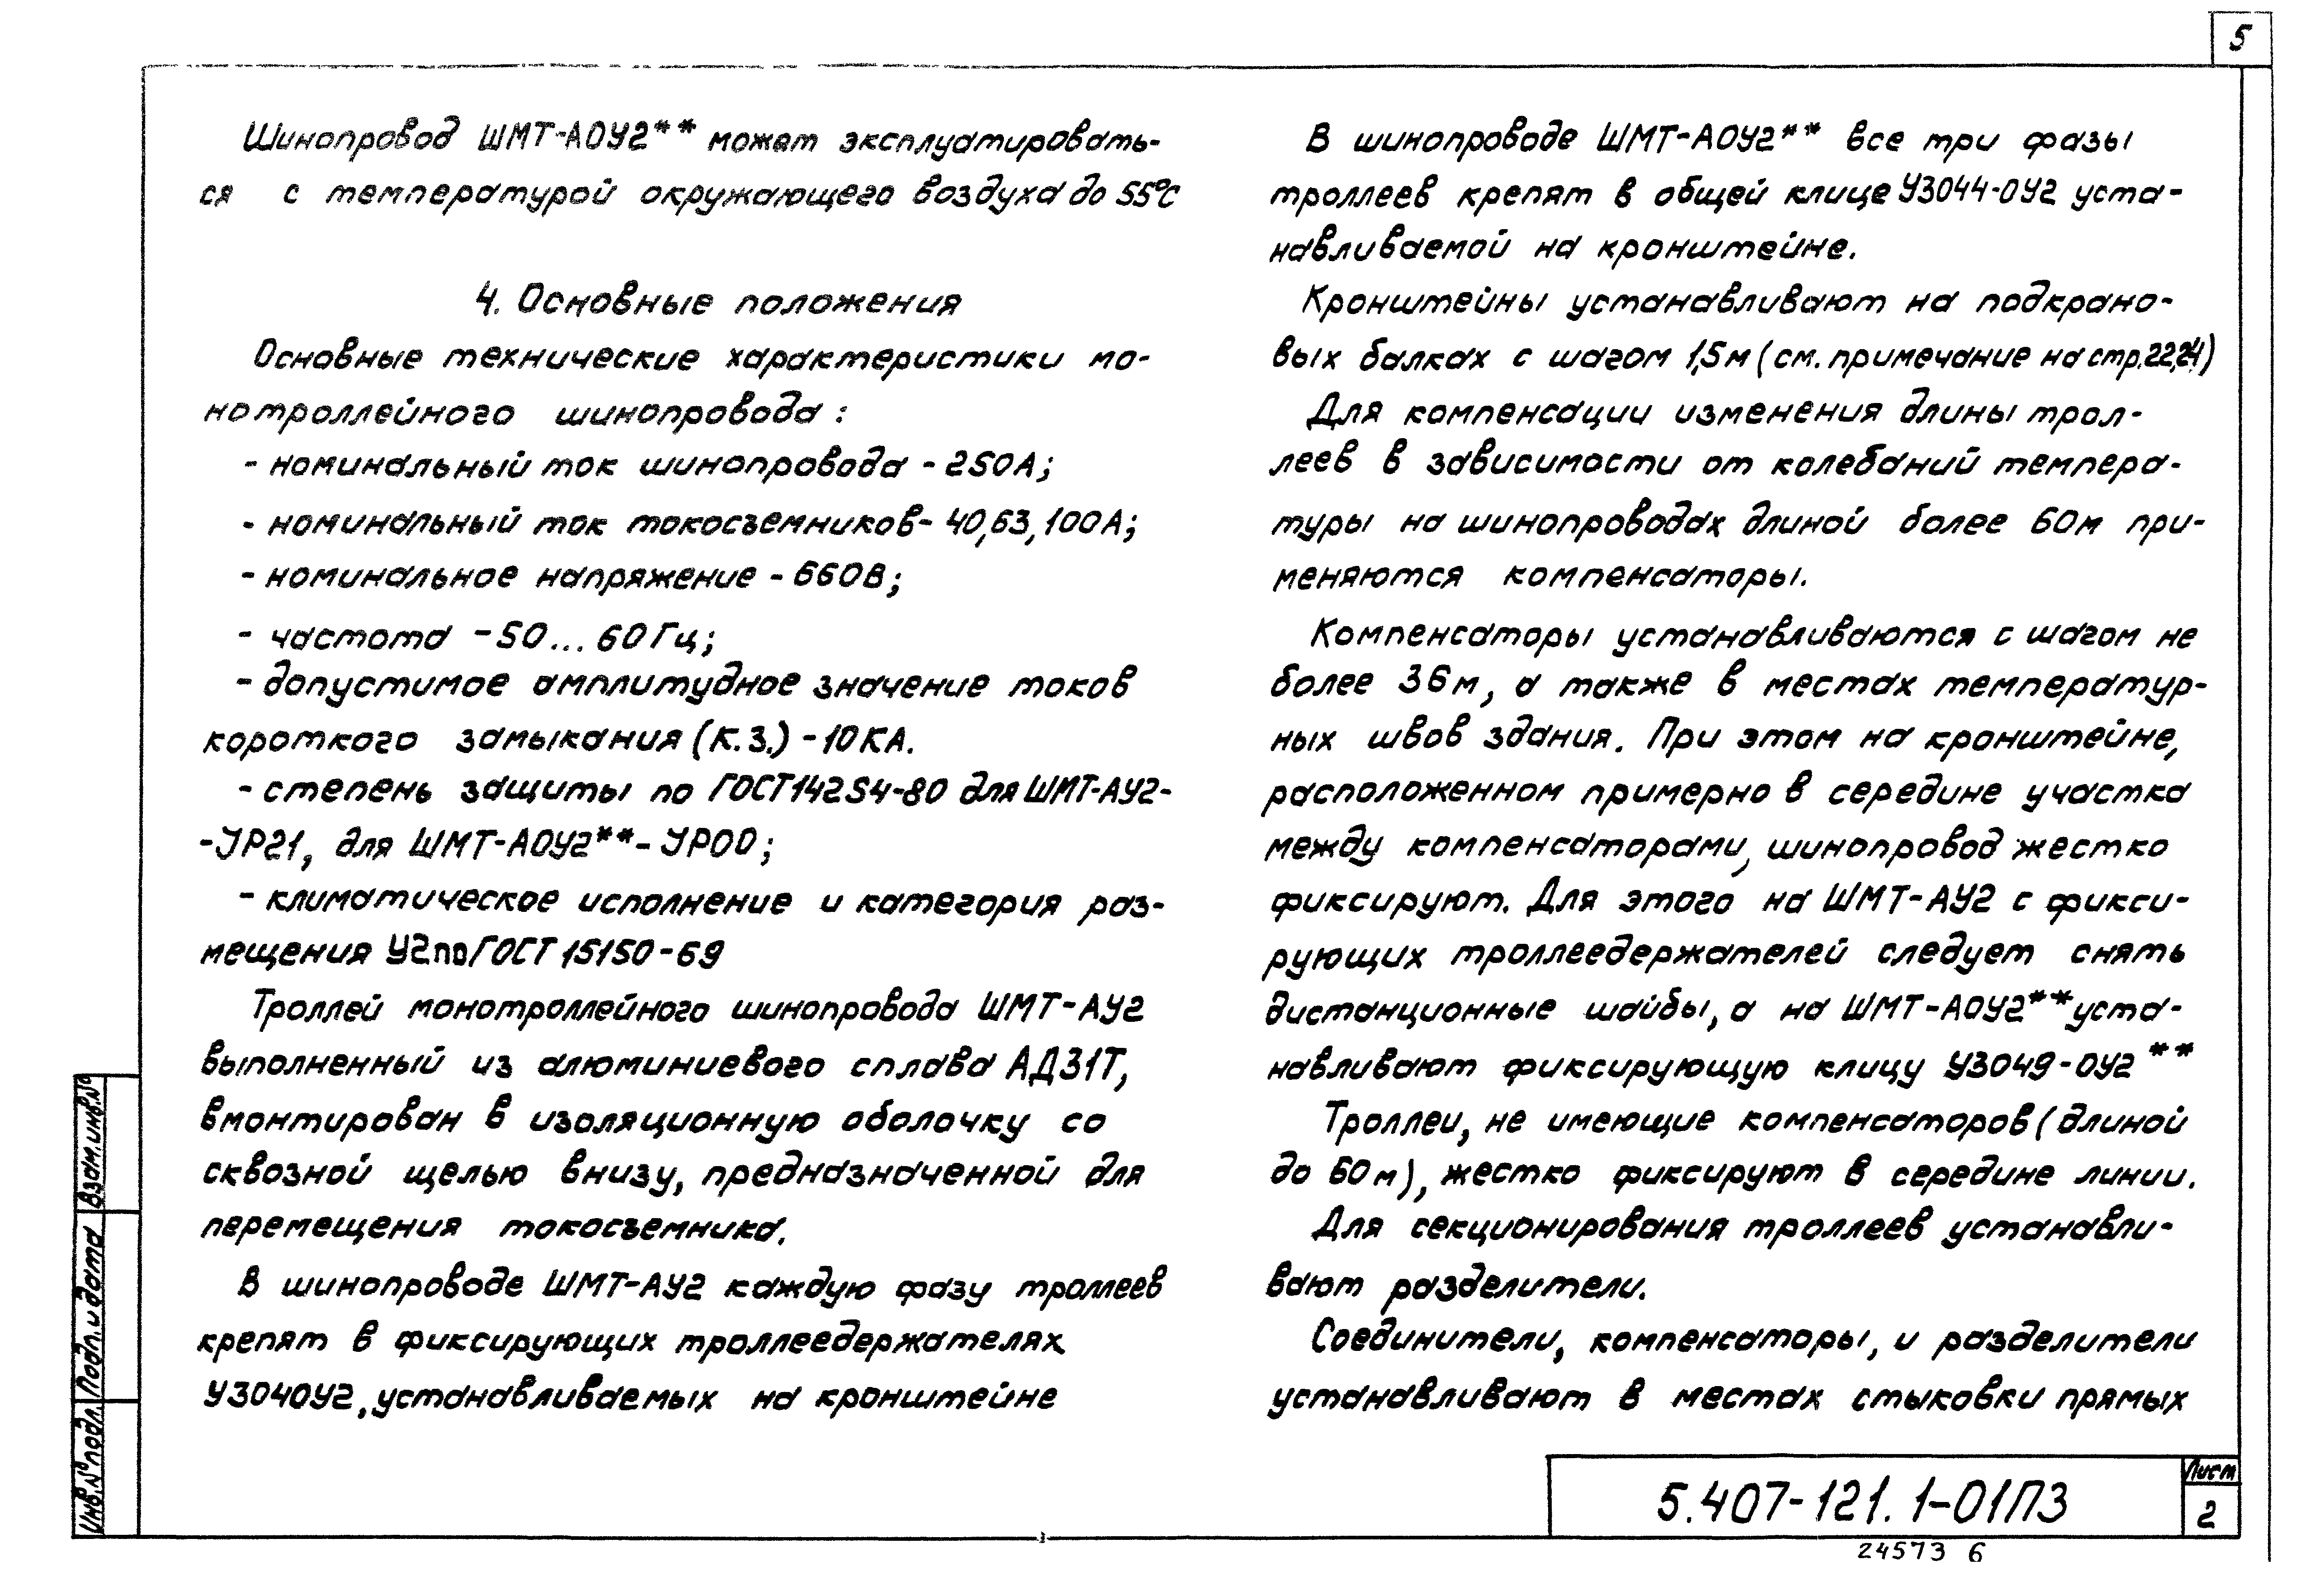 5
Шинопровод ШМТ-А0У2** может эксплуатировать-
ся с температурой окружающего воздуха до 55°С
4. Основные положения
Основные технические характеристики мо-
нотроллейного шинопровода:
- номинальный ток шинопровода - 250А;
- номинальный ток токосъемников- 40,63,100А;
- номинальное напряжение - 660В;
- частота - 50...60Гц;
- допустимое амплитудное значение токов
короткого замыкания (К.З.) - 10КА.
- степень защиты по ГОСТ14254-80 для ШМТ-АУ2-
-УР21, для ШМТ-А0У2**- УР00;
- климатическое исполнение и категория раз-
мещения У2по ГОСТ 15150-69
Троллей монотроллейного шинопровода ШМТ-АУ2
выполненный из алюминиевого сплава АД31Т,
вмонтирован в изоляционную оболочку со
сквозной щелью внизу, предназначенной для
перемещения токосъемника.
В шинопроводе ШМТ-АУ2 каждую фазу троллеев
крепят в фиксирующих троллеедержателях
У3040У2, устанавливаемых на кронштейне
В шинопроводе ШМТ-А0У2** все три фазы
троллеев крепят в общей клице У3044-0У2 уста-
навливаемой на кронштейне.
Кронштейны устанавливают на подкрано-
вых балках с шагом 1,5м (см. примечание на стр.22,24)
Для компенсации изменения длины трол-
леев в зависимости от колебаний темпера-
туры на шинопроводах длиной более 60м при-
меняются компенсаторы.
Компенсаторы устанавливаются с шагом не
более 36м, а также в местах температур-
ных швов здания. При этом на кронштейне,
расположенном примерно в середине участка
между компенсаторами, шинопровод жестко
фиксируют. Для этого на ШМТ-АУ2 с фикси-
рующих троллеедержателей следует снять
дистанционные шайбы, а на ШМТ-А0У2** уста-
навливают фиксирующую клицу У3049-0У2**
Троллеи, не имеющие компенсаторов (длиной
до 60м), жестко фиксируют в середине линии.
Для секционирования троллеев устанавли-
вают разделители.
Соединители, компенсаторы, и разделители
устанавливают в местах стыковки прямых
Взам.инв.№
Подп. и дата
Инв.№ подл.
5.407-121.1-01ПЗ
Лист
2
24573 6